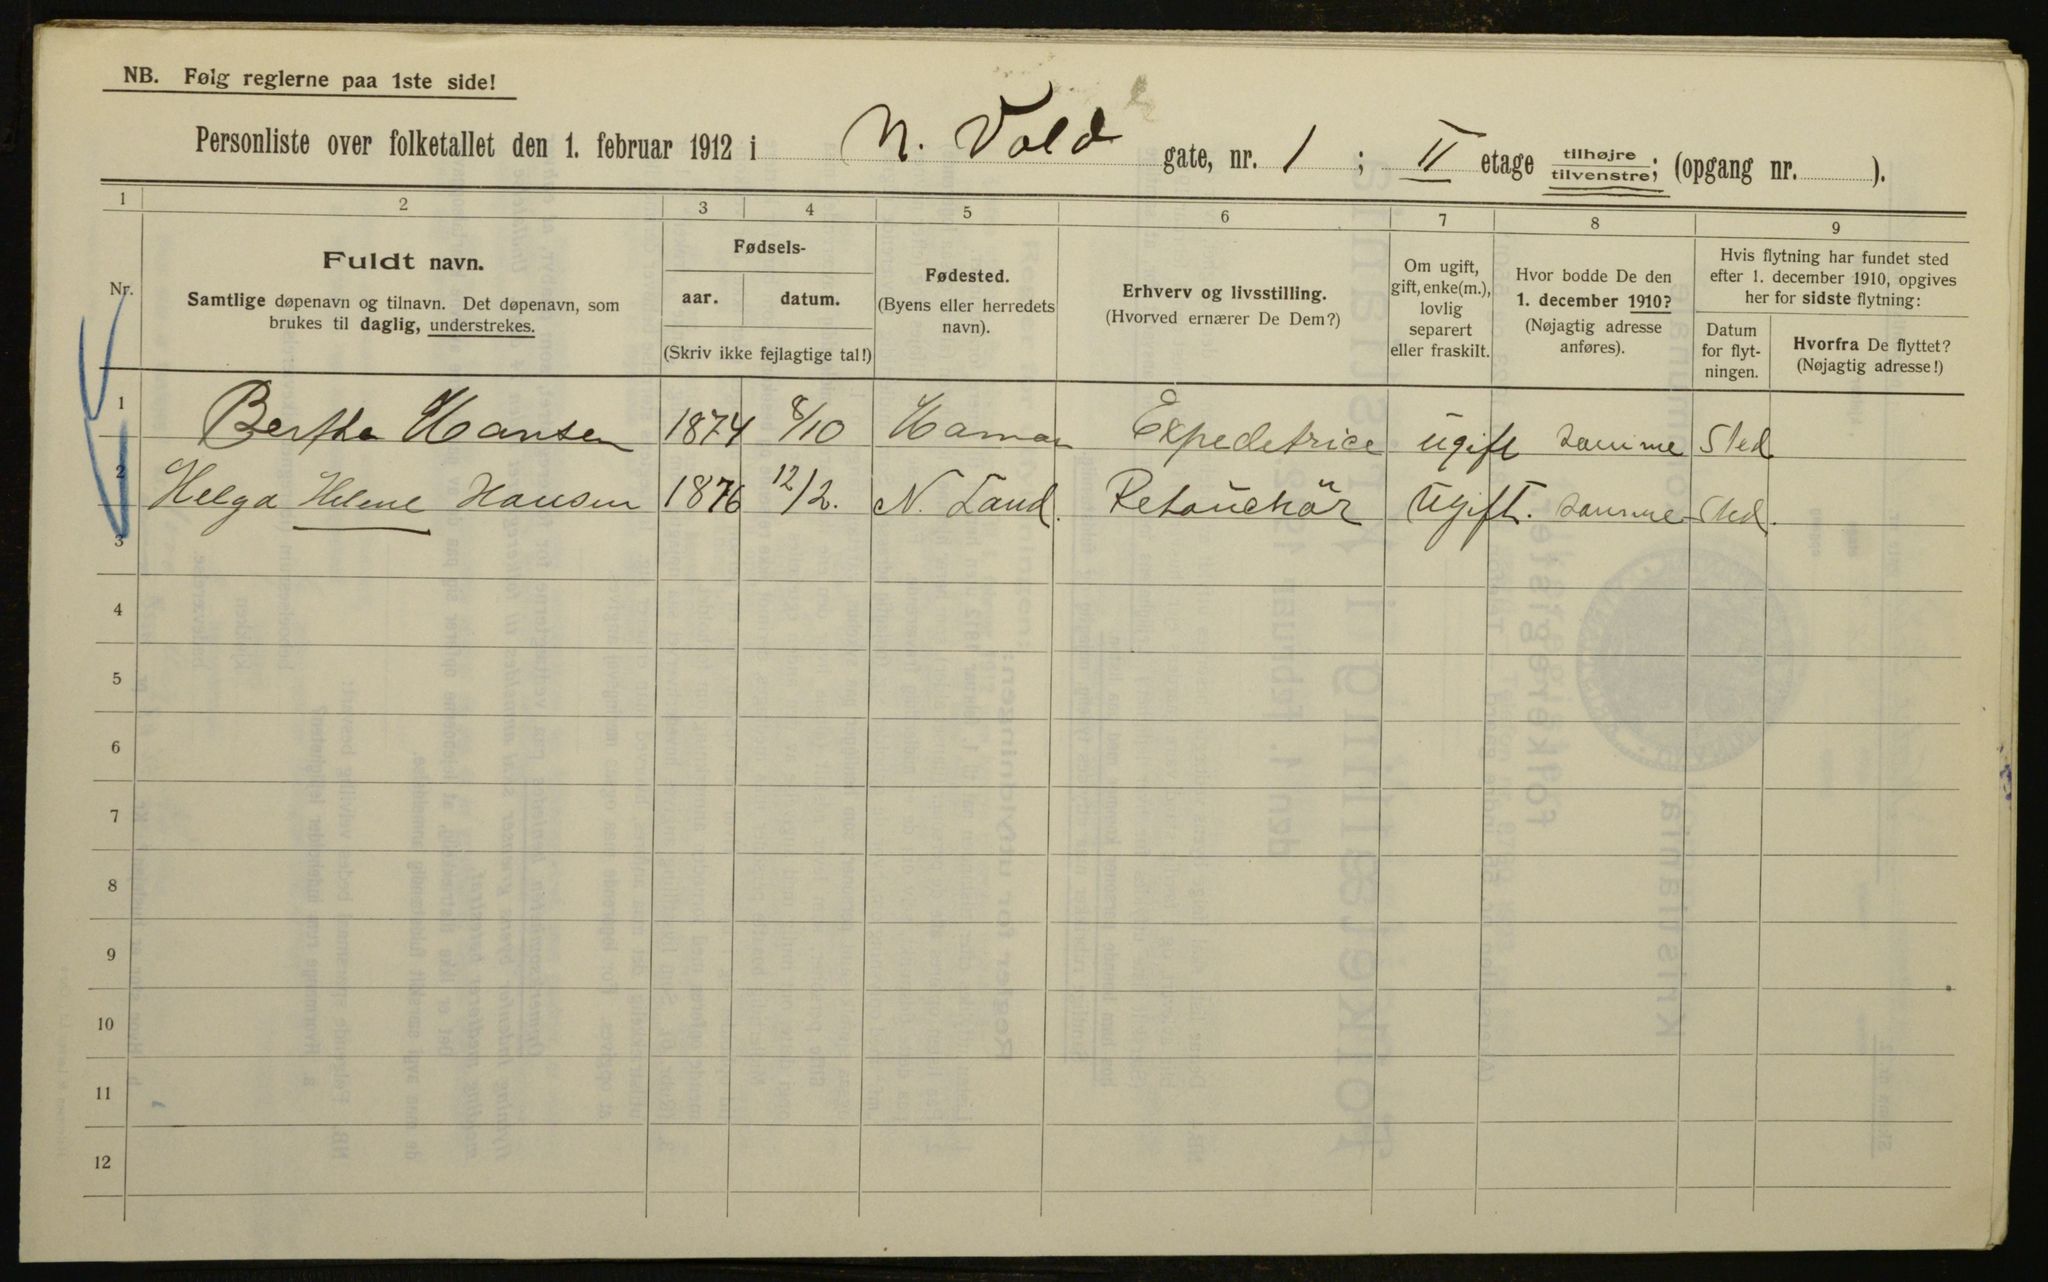 NB. Følg reglerne paa 1ste side!
Personliste over folketallet den 1. februar 1912 i N. Vold gate, nr. 1 ; II etage tilhøjre tilvenstre; (opgang nr. ).
1 2 3 4 5 6 7 8 9
Nr.
Fuldt navn.
Samtlige døpenavn og tilnavn. Det døpenavn, som
brukes til daglig, understrekes.
Fødsels-
aar. datum.
(Skriv ikke fejlagtige tal!)
Fødested.
(Byens eller herredets
navn).
Erhverv og livsstilling.
(Hvorved ernærer De Dem?)
Om ugift,
gift, enke(m.),
lovlig
separert
eller fraskilt.
Hvor bodde De den
1. december 1910?
(Nøjagtig adresse
anføres).
Hvis flytning har fundet sted
efter 1. december 1910, opgives
her for sidste flytning:
Datum
for flyt-
ningen.
Hvorfra De flyttet?
(Nøjagtig adresse!)
1 Bertha Hansen 1874 8/10 Hamar Expeditrice ugift samme Sted
2 Helga Helene Hansen 1876 12/2. N. Land. Retouchör Ugift. samme Sted.
3
4
5
6
7
8
9
10
11
12